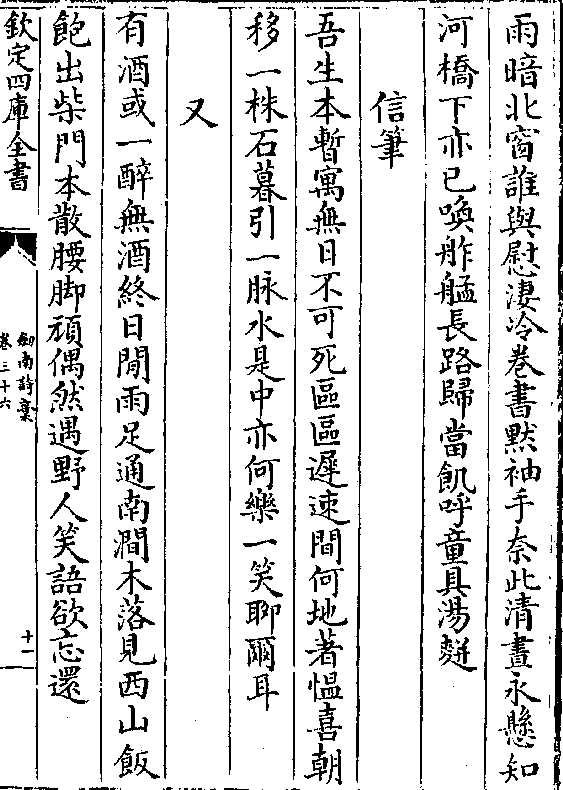 雨暗北窗誰與慰淒冷卷書黙袖手奈此清晝永懸知
河橋下亦已喚舴艋長路歸當飢呼童具湯䴵
信筆
吾生本暫寓無日不可死區區遲速間何地著愠喜朝
移一株石暮引一脉水是中亦何樂一笑聊爾耳
又
有酒或一醉無酒終日閒雨足通南澗木落見西山飯
飽出柴門本散腰脚頑偶然遇野人笑語欲忘還
欽定四庫全書
劍南詩稾
卷三十六
十一